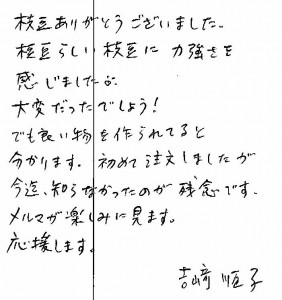 枝豆ありがとうございました。
枝豆らしい枝豆に力強さを
感じました。
大変だったでしょう!
でも良い物を作られてると
分かります。初めて注文しましたが
今迄、知らなかったのが残念です、
メルマガ楽しみに見ます。
応援します。
吉﨑恒子